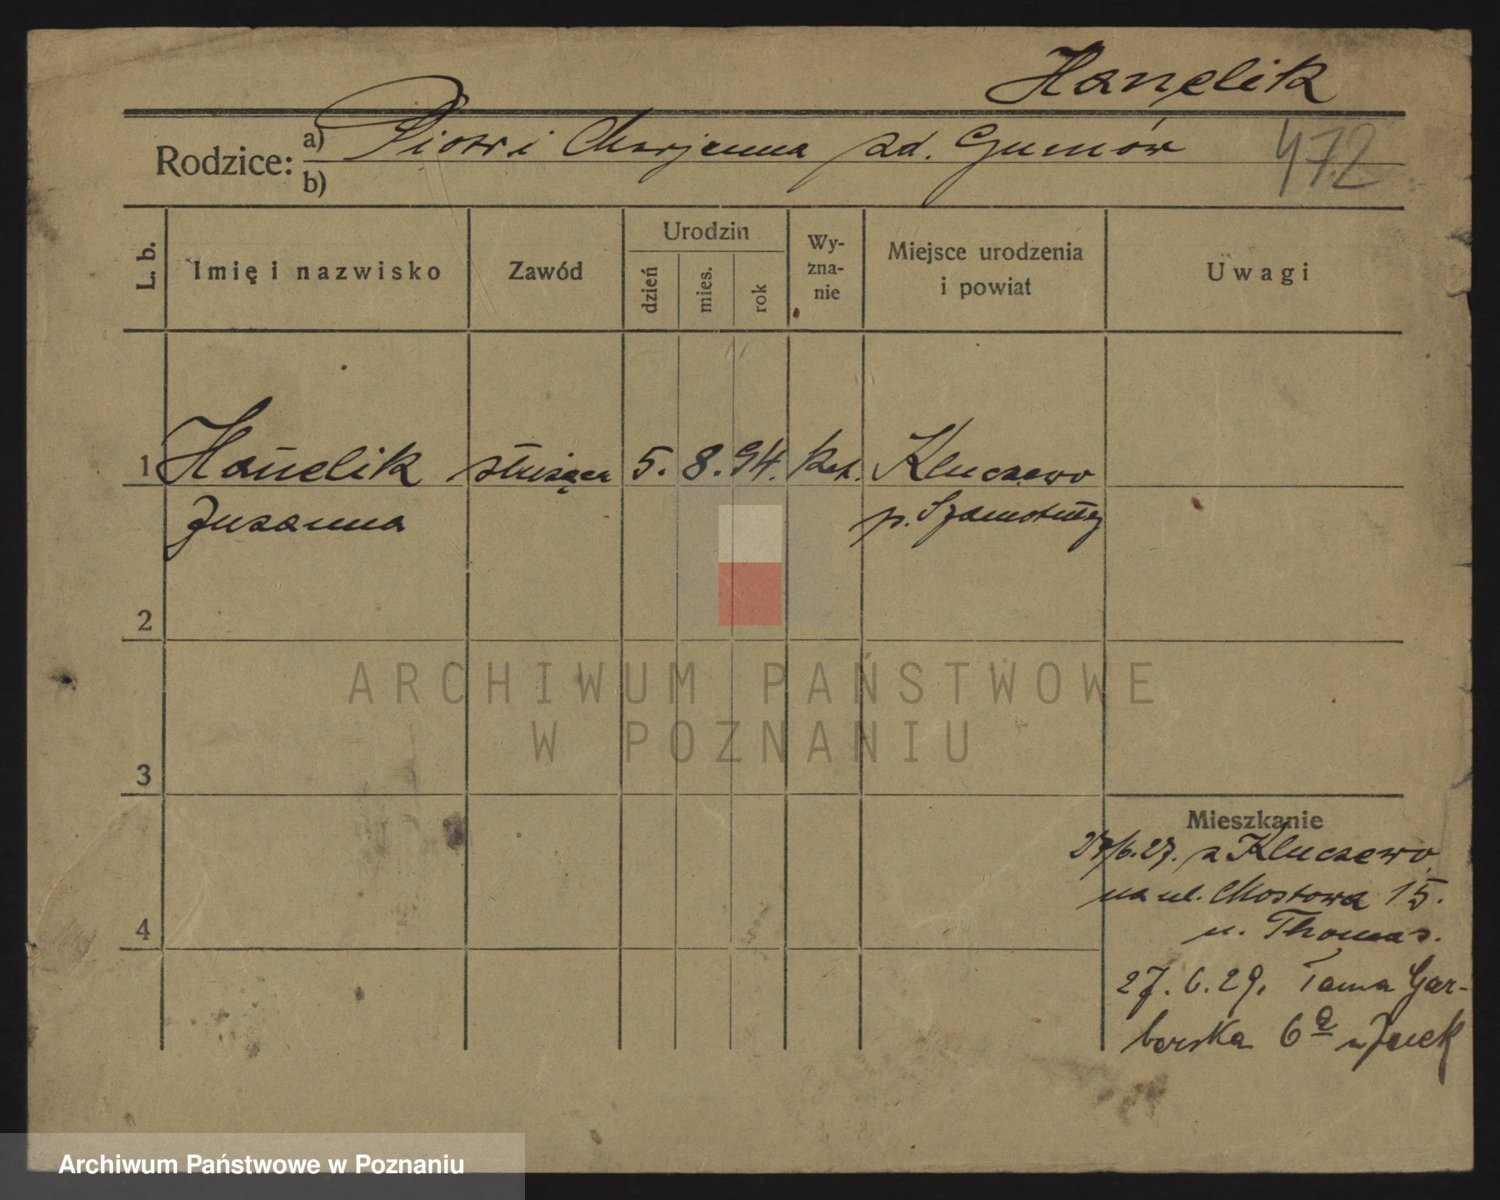 Hanelik
Rodzice: a) Piotr i Marjanna zd. Gumów
b)
472
L. b.
Imię i nazwisko
Zawód
Urodzin
dzień
mies.
rok
Wy-
zna-
nie
Miejsce urodzenia
i powiat
Uwagi
1 Hanelik służąca 5. 8. 94. kat. Kluczewo
Zuzanna p. Szamotuły
2
3
4
Mieszkanie
27/6.27. z Kluczewo
na ul. Mostowa 15.
u. Thomas.
27. 6. 29. Tama Gar-
barska 6a u
ARCHIWUM PAŃSTWOWE
W POZNANIU
Archiwum Państwowe w Poznaniu